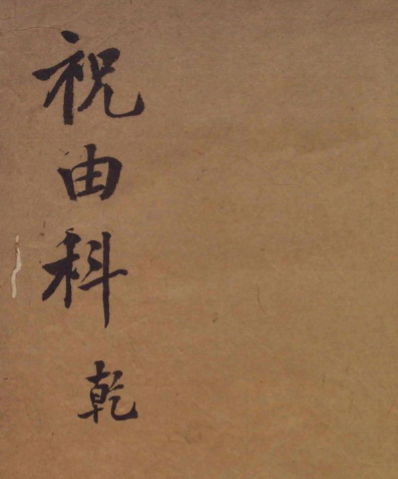 祝由科
乾